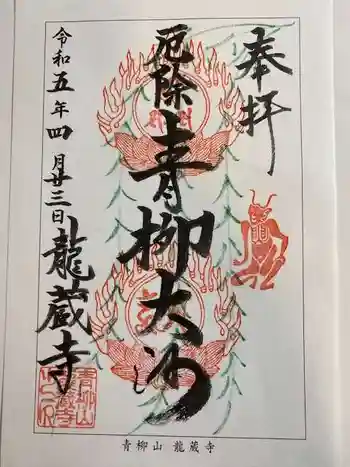 奉拝
厄除 青柳大師
令和五年四月廿三日
龍蔵寺
青柳山 龍蔵寺